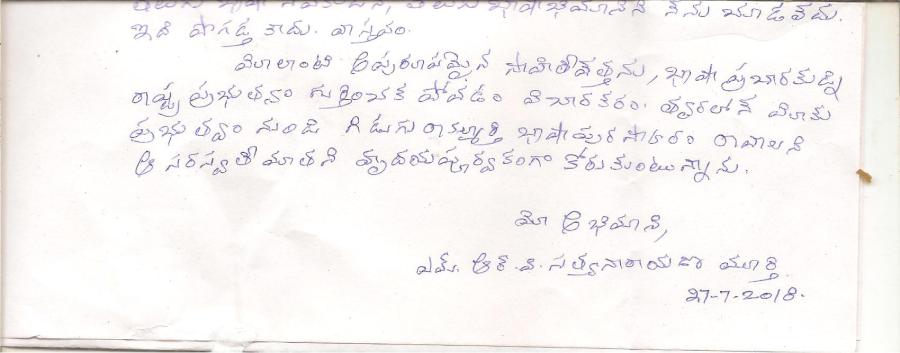 తెలుగు భాషా సేవకుడిని, తెలుగు భాషాభిమానిని నేను చూడలేదు.
ఇది పొగడ్త కాదు. వాస్తవం.
మీలాంటి అపురూపమైన సాహితీవేత్తను, భాషా ప్రచారకుడ్ని
రాష్ట్ర ప్రభుత్వం గుర్తించక పోవడం విచారకరం. త్వరలోనే మీకు
ప్రభుత్వం నుండి గిడుగు రామ్మూర్తి భాషా పురస్కారం రావాలని
ఆ సరస్వతీ మాతని హృదయపూర్వకంగా కోరుకుంటున్నాను.
మీ అభిమాని,
ఎమ్. ఆర్. వి. సత్యనారాయణ మూర్తి
27-7-2018.